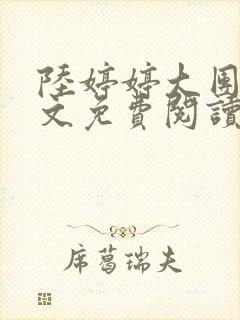 陸婷婷大團
文免費閱讀
席葛瑞夫